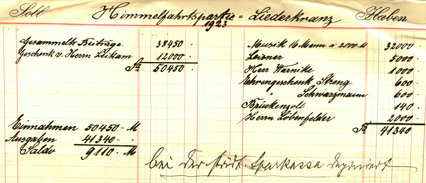 Soll Himmelfahrtspartie - Liederkranz Haben
1923
Gesammelte Beiträge 38450 -
Geschenk v. Herrn Leikam 12000 -
M 50450 -
Musik 16 Mann a 2000 M 32000 -
Leisner 5000 -
Herr Warnike 1000 -
Fahnengeschenk Streng 600 -
" Schwarzmann 600 -
Brückenzoll 140 -
Herrn Löbenfelder 2000 -
M 41340
Einnahmen 50450 - M
Ausgaben 41340 -
Saldo 9110 - M
bei der städt Sparkasse deponiert